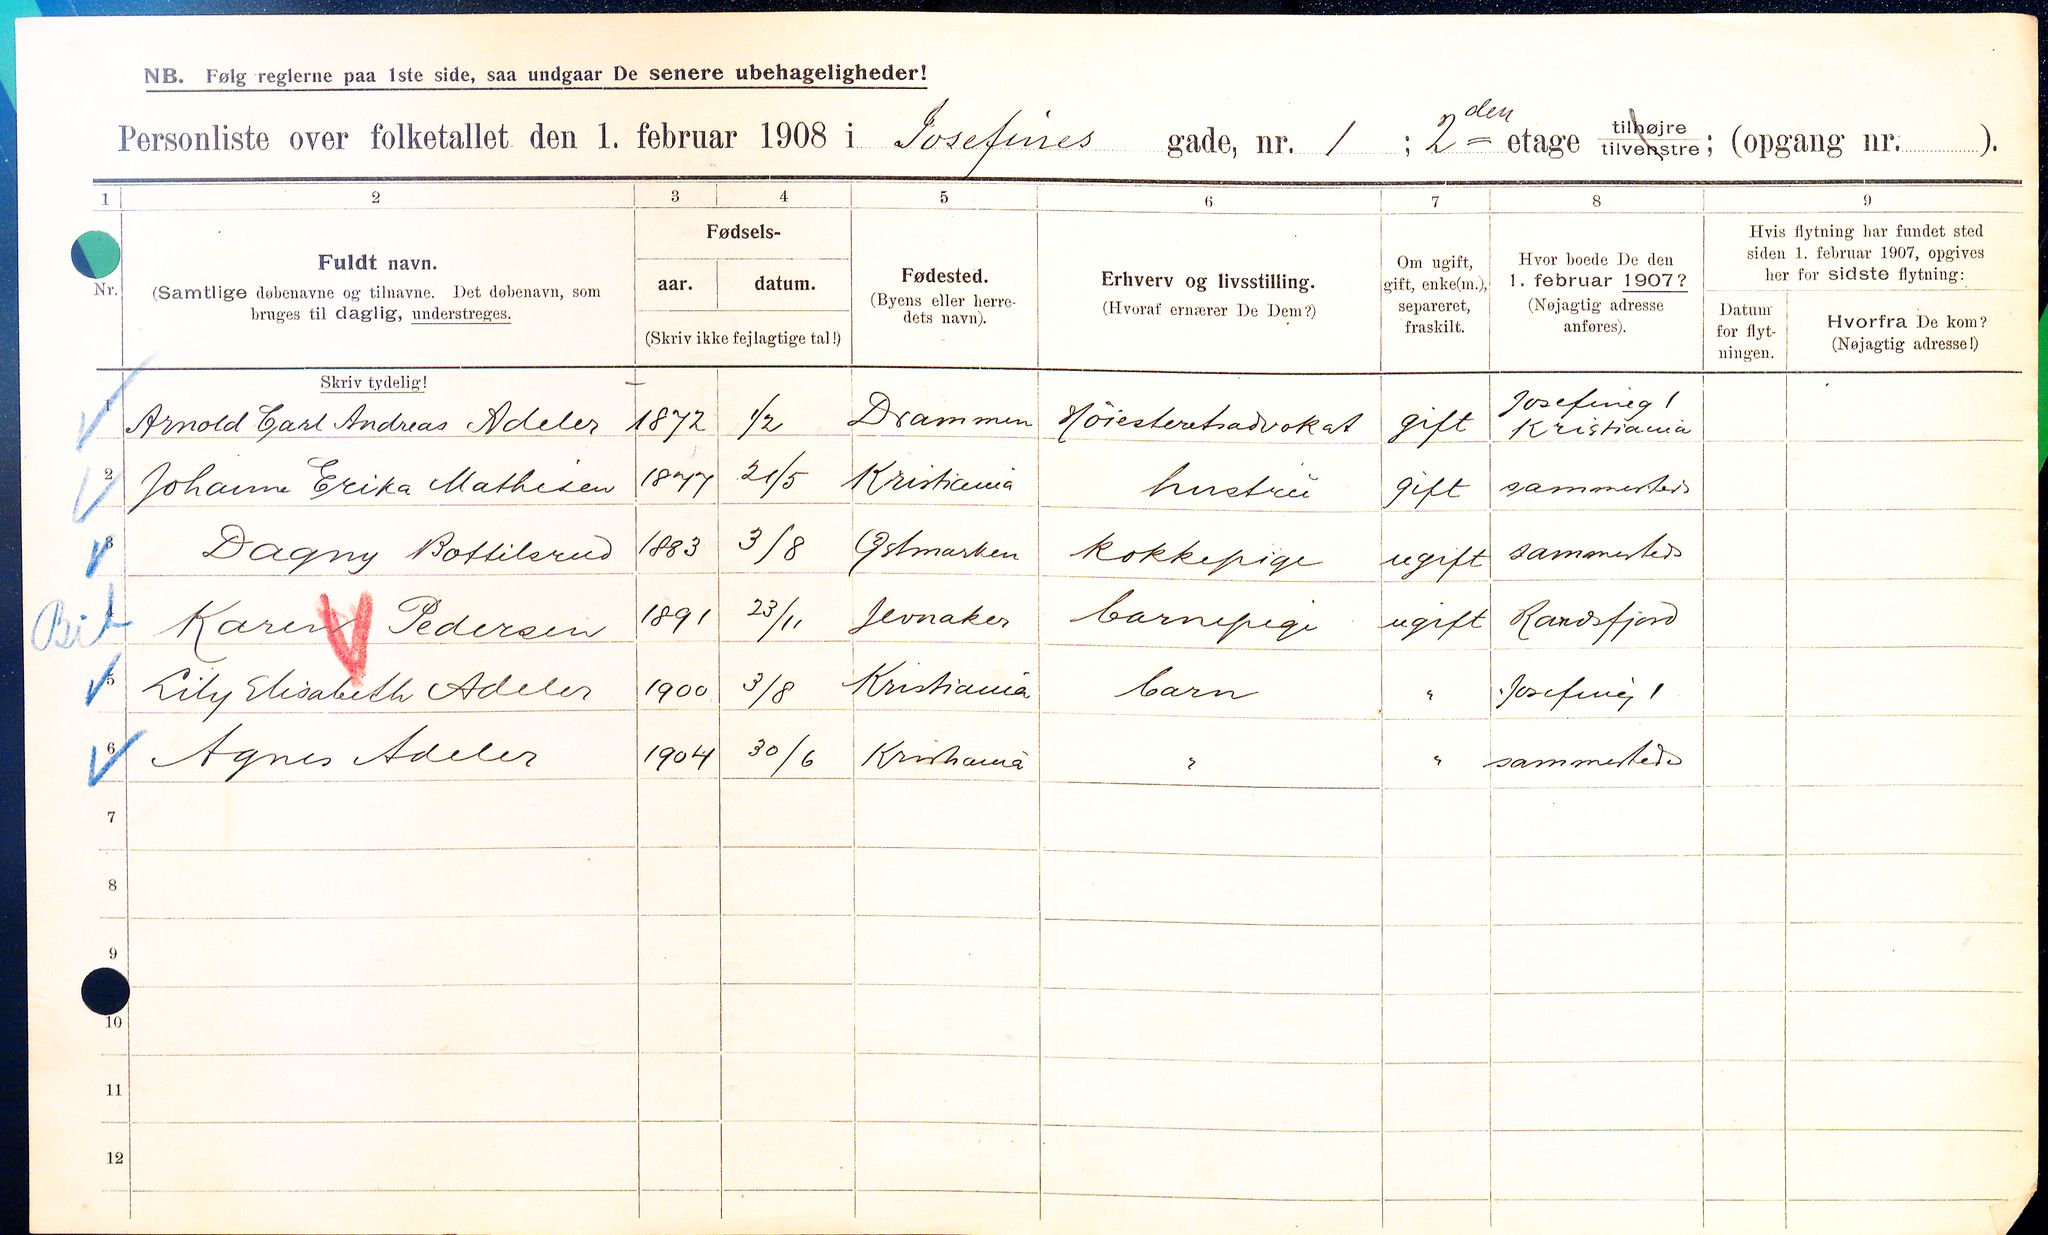 NB. Følg reglerne paa 1ste side, saa undgaar De senere ubehageligheder!
Personliste over folketallet den 1. februar 1908 i Josefines gade, nr. 1 ; 2den etage tilhøjre tilvenstre ; (opgang nr. ).
1 2 3 4 5 6 7 8 9
Nr.
Fuldt navn.
(Samtlige døbenavne og tilnavne. Det døbenavn, som
bruges til daglig, understreges.
Skriv tydelig!
Fødsels-
aar. datum.
(Skriv ikke fejlagtige tal!)
Fødested.
(Byens eller herre-
dets navn).
Erhverv og livsstilling.
(Hvoraf ernærer De Dem?)
Om ugift,
gift, enke(m.),
separeret,
fraskilt.
Hvor boede De den
1. februar 1907?
(Nøjagtig adresse
anføres).
Hvis flytning har fundet sted
siden 1. februar 1907, opgives
her for sidste flytning:
Datum
for flyt-
ningen.
Hvorfra De kom?
(Nøjagtig adresse!)
1 Arnold Carl Andreas Adeler 1872 1/2 Drammen Høiesteretsadvokat gift Josefineg 1 Kristiania
2 Johanne Erika Mathisen 1877 21/5 Kristiania hustru gift sammesteds
3 Dagny Bottilsrud 1883 3/8 Østmarken kokkepige ugift sammesteds
Bib 4 Karen Pedersen 1891 23/11 Jevnaker barnepige ugift Randsfjord
5 Lily Elisabeth Adeler 1900 3/8 Kristiania barn " Josefineg 1
6 Agnes Adeler 1904 30/6 Kristiania " " sammesteds
7
8
9
10
11
12